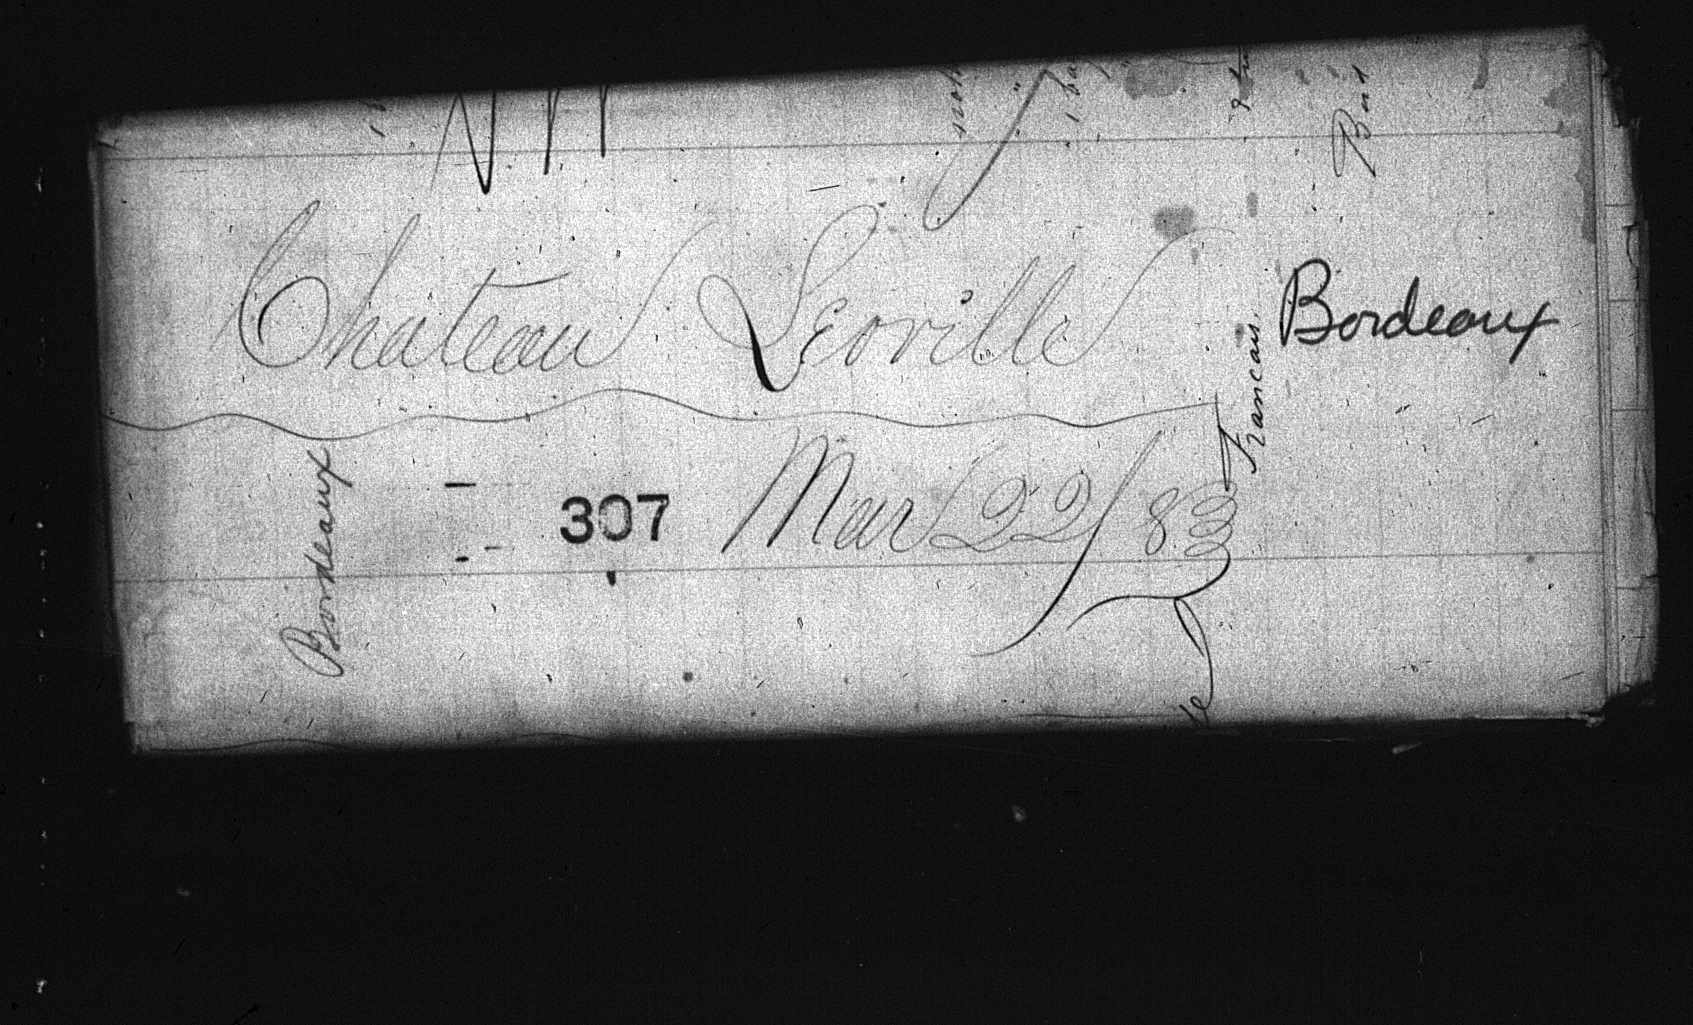 Chateau Leoville
Bordeaux
307 Mar 22/83
Bordeaux
Francais.